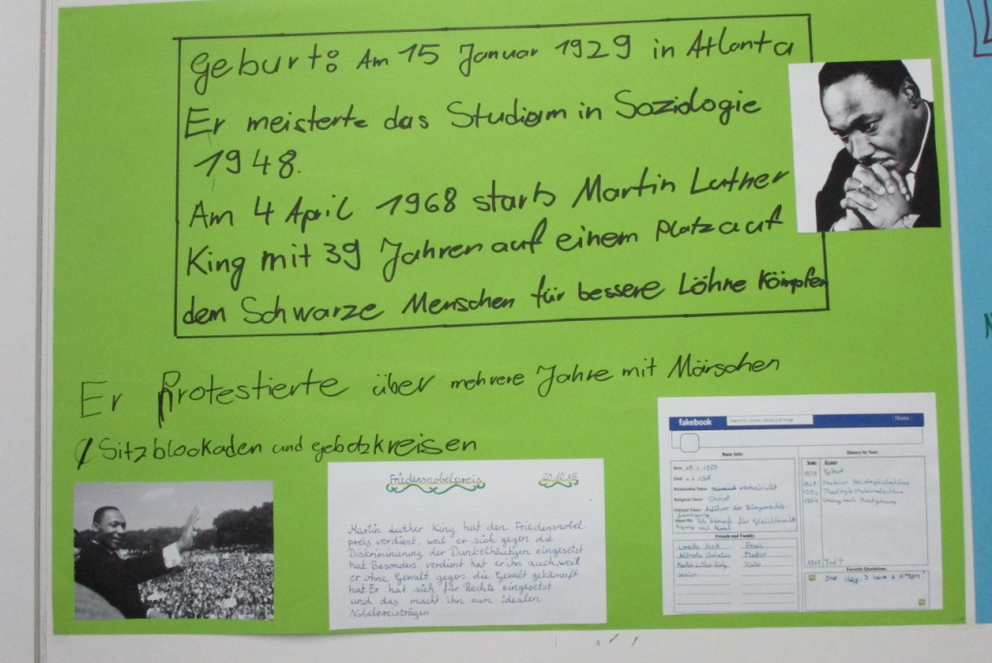 Geburt: Am 15 Januar 1929 in Atlanta
Er meisterte das Studium in Soziologie
1948.
Am 4 April 1968 starb Martin Luther
King mit 39 Jahren auf einem Platz auf
dem Schwarze Menschen für bessere Löhne Kömpfen
Er Protestierte über mehrere Jahre mit Märschen
Sitzblockaden und gebetzkreisen
Friedensnobelpreis
Martin Luther King hat den Friedensnobel-
preis verdient, weil er sich gegen die
Diskriminierung der Dunkelhäutigen eingesetzt
hat. Besonders verdient hat er ihn auch, weil
er ohne Gewalt gegen die Gewalt gekämpft
hat. Er hat sich für Rechte eingesetzt
und das macht ihn zum idealen
Nobelpreisträger
fakebook
Home
Basic Info:
History by Year:
Year:
Event:
Geburt
Friends and Family:
Vater
Favorite Quotations: